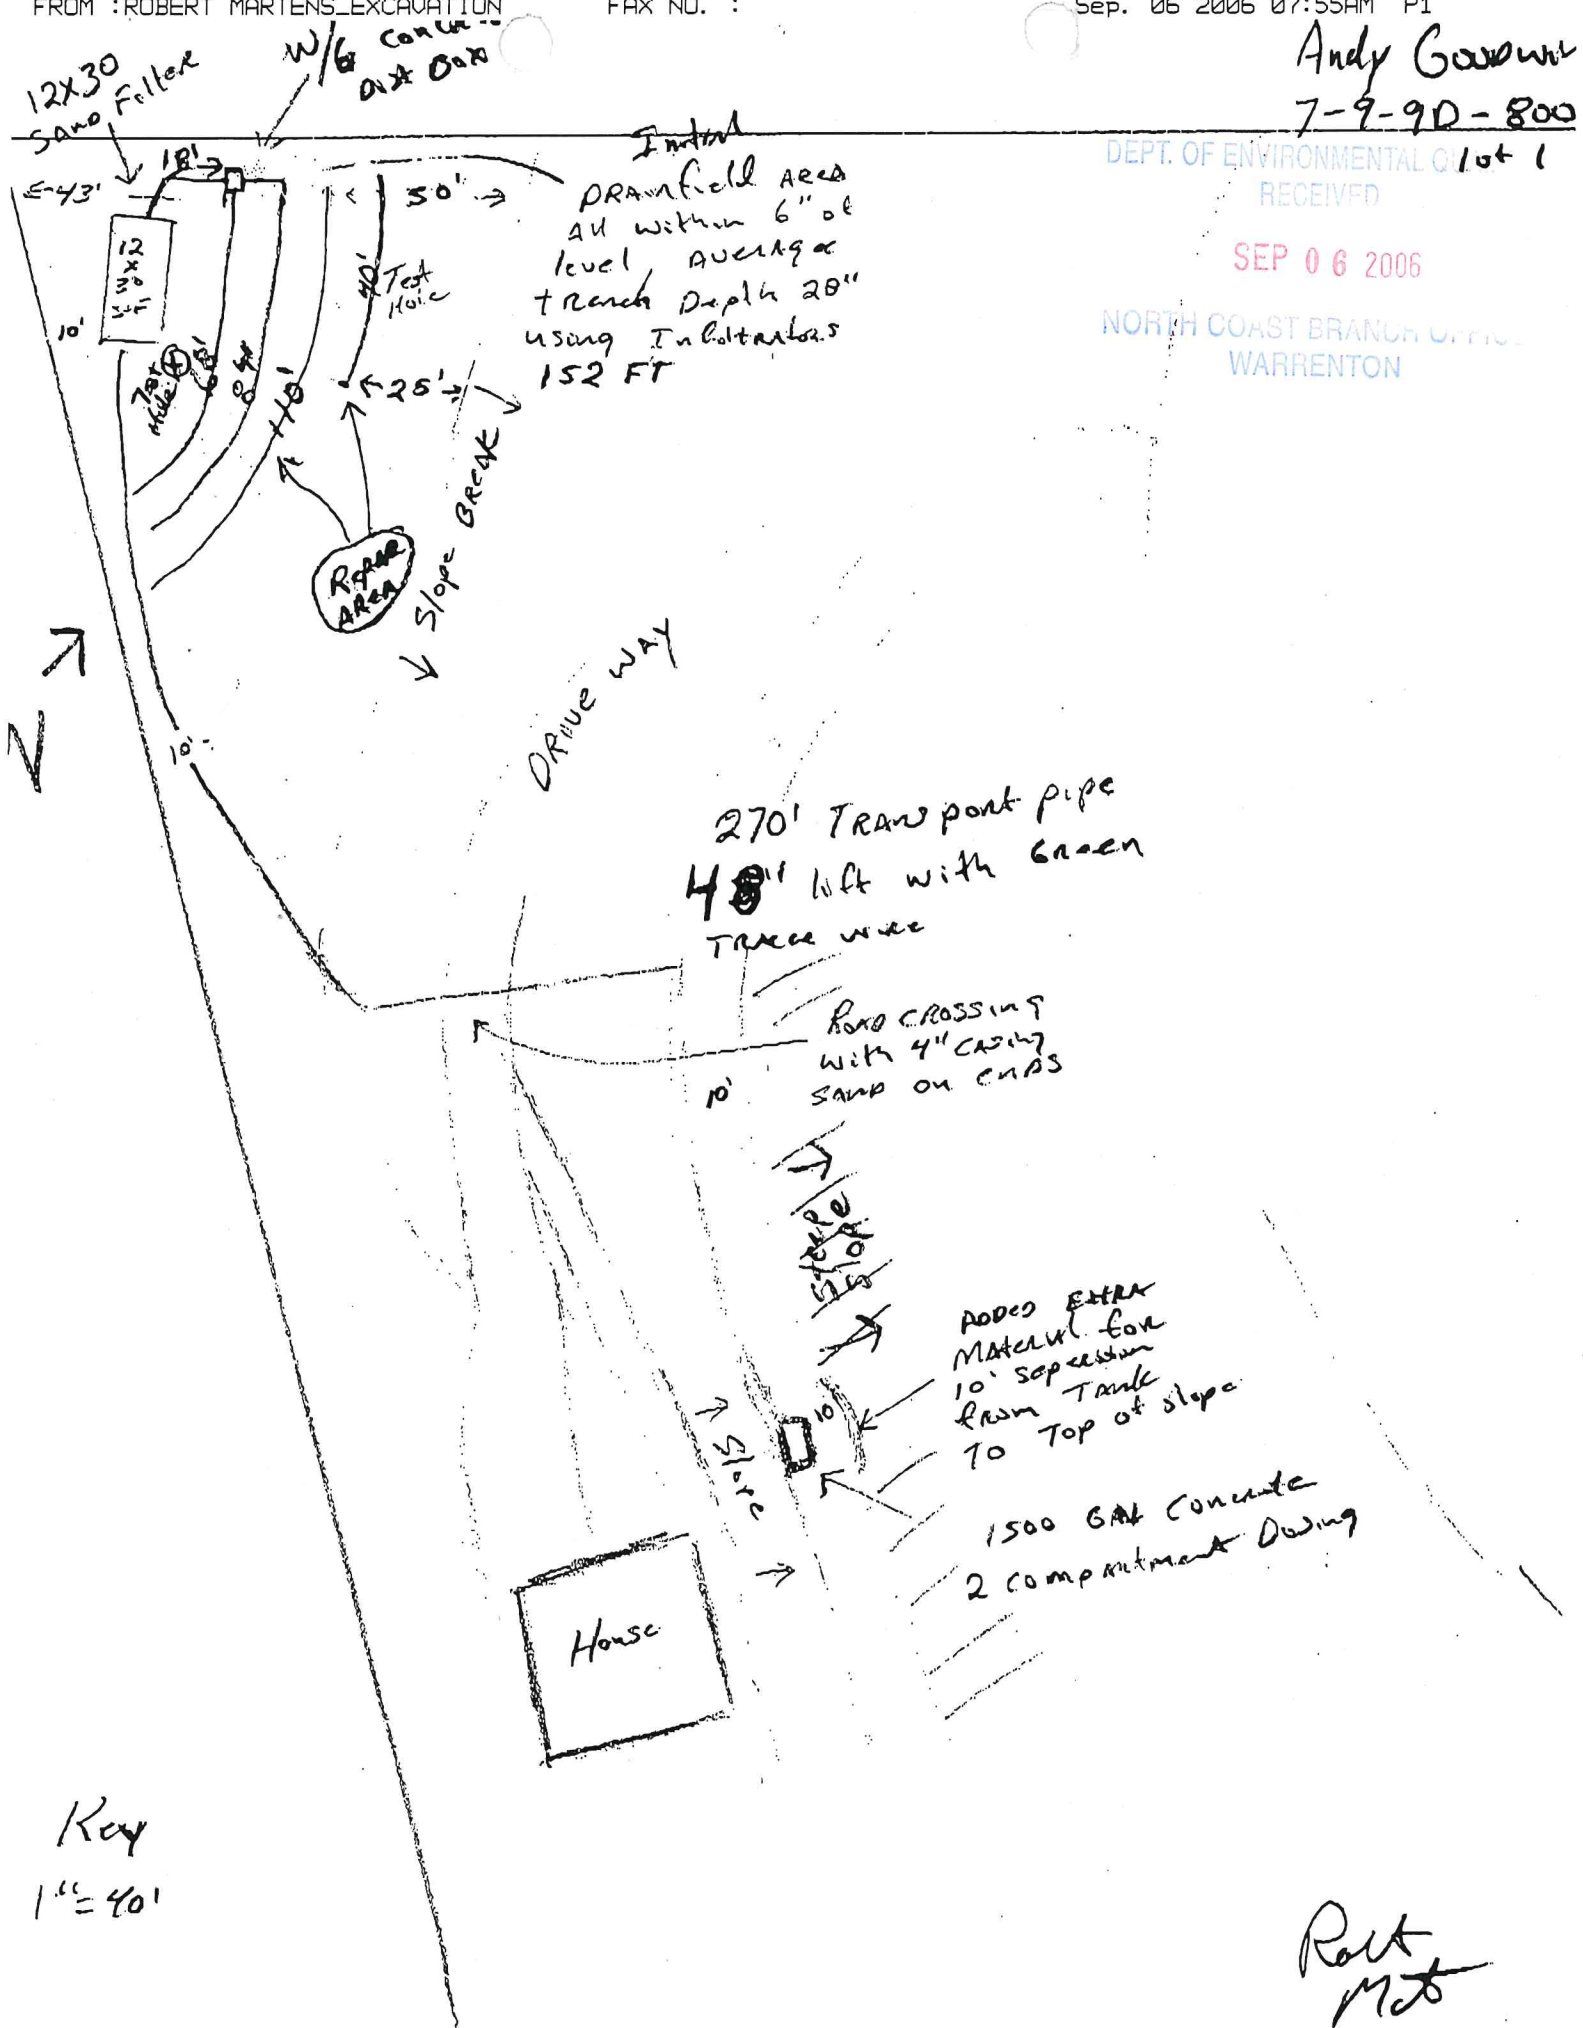 FROM :ROBERT MARTENS_EXCAVATION FAX NO. : Sep. 06 2006 07:55AM P1
Andy Goodwin
7-9-9D-800
lot 1
DEPT. OF ENVIRONMENTAL
RECEIVED
SEP 06 2006
NORTH COAST BRANCH
WARRENTON
12X30
SAND Filter
W/6
Dist Box
18'
43'
50'
Initial
DRAINfield AREA
All within 6" of
level, Average
trench Depth 28"
using Infiltrators
152 FT
Test
Hole
40'
10'
Test
Hole
68'
84'
110'
25'
Slope BREAK
Repair
AREA
N
DRIVE WAY
10'
270' TRANSport pipe
48" lift with Green
TRACE wire
ROAD CROSSING
with 4" CASING
SAND on ENDS
10'
ADDED EXTRA
MATERIAL for
10' seperation
from TANK
TO Top of slope
10'
Slope
1500 GAL Concrete
2 compartment Dosing
House
Key
1"=40'